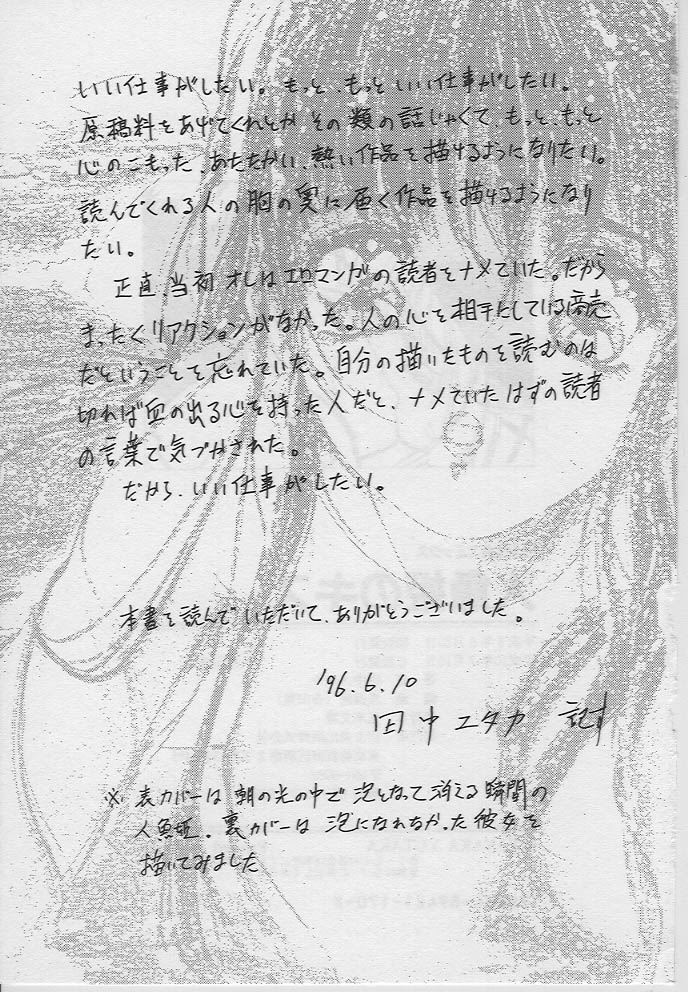 いい仕事がしたい。もっと、もっといい仕事がしたい。
原稿料をあげてくれとかその類の話じゃなくて、もっと、もっと
心のこもった、あたたかい、熱い作品を描けるようになりたい。
読んでくれる人の胸の奥に届く作品を描けるようになり
たい。
正直、当初オレはエロマンガの読者をナメていた。だから
まったくリアクションがなかった。人の心を相手にしている商売
だということを忘れていた。自分の描いたものを読むのは
切れば血の出る心を持った人だと、ナメていたはずの読者
の言葉で気づかされた。
だから、いい仕事がしたい。
本書を読んでいただいて、ありがとうございました。
'96.6.10
田中ユタカ 記す
※ 表カバーは朝の光の中で泡となって消える瞬間の
人魚姫。裏カバーは泡になれなかった彼女を
描いてみました